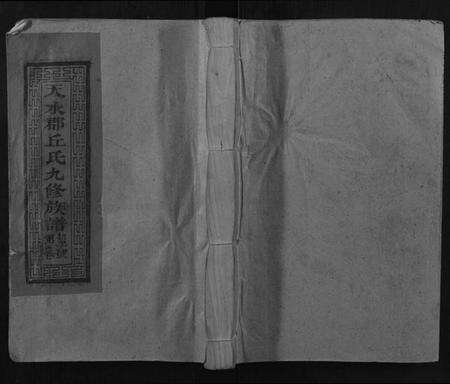 天水郡丘氏九修族譜